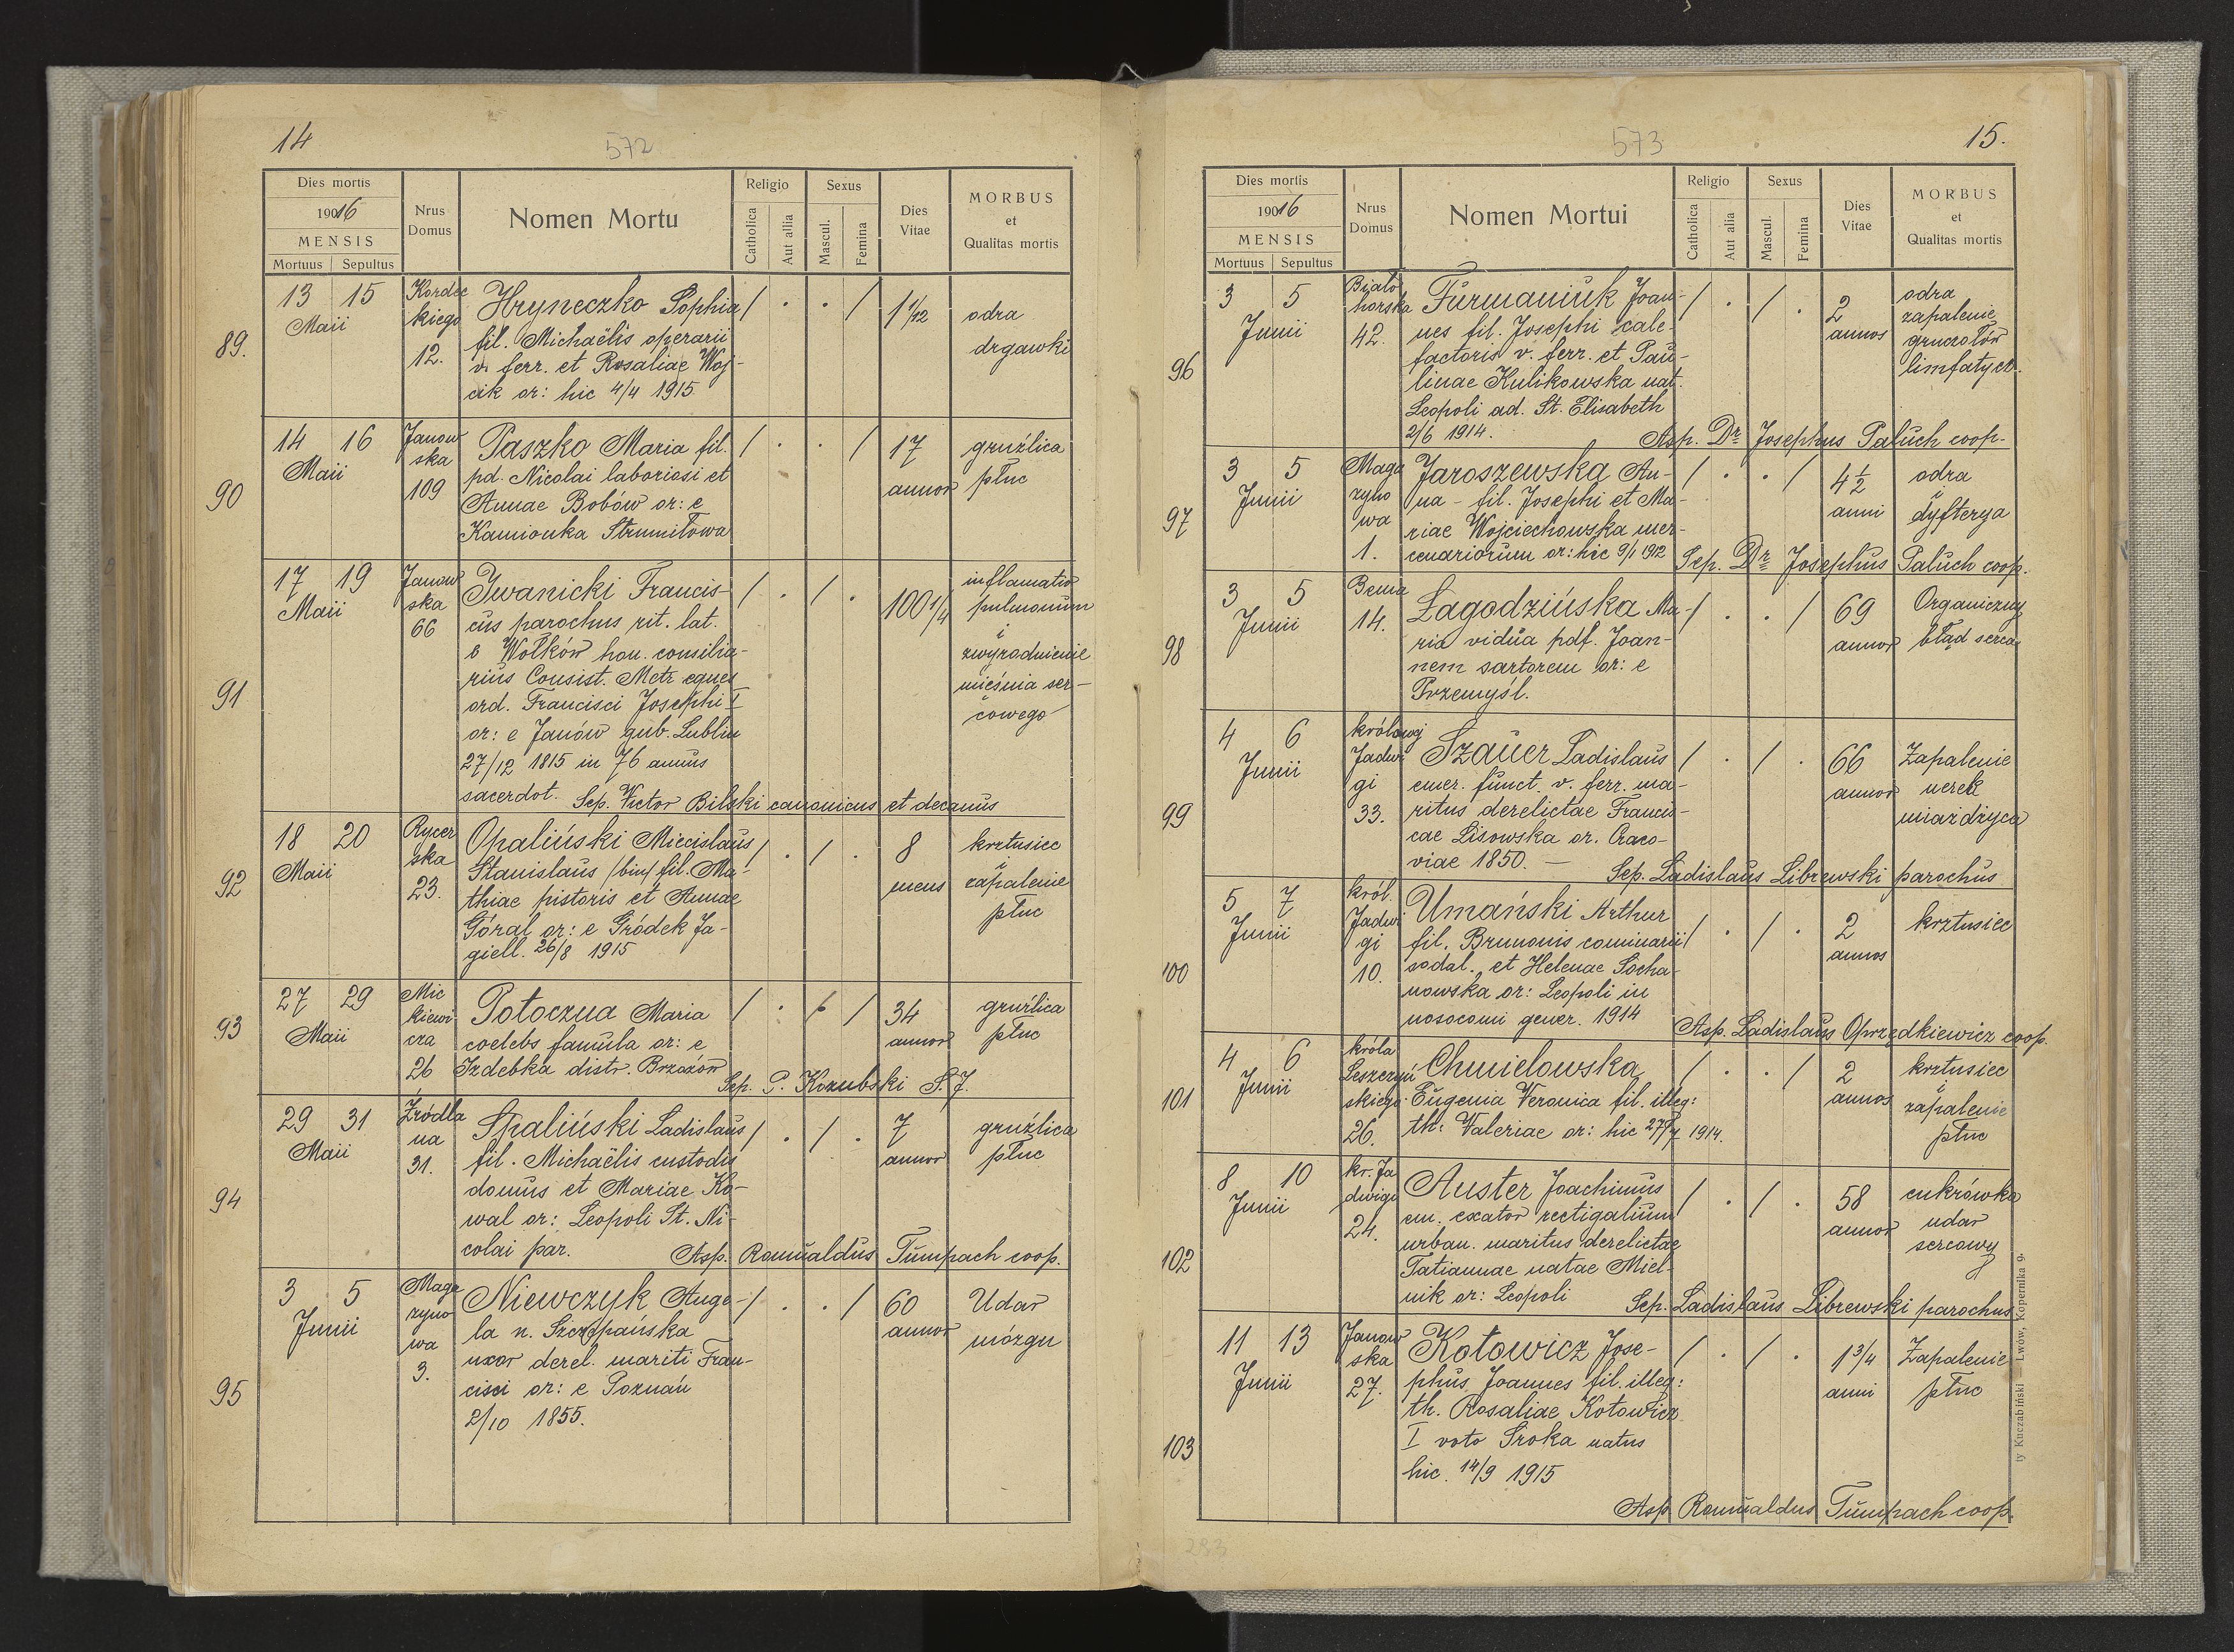 14
572
Dies mortis
1916
MENSIS
Mortuus Sepultus
Nrus Domus
Nomen Mortu
Religio
Catholica
Aut allia
Sexus
Mascul.
Femina
Dies Vitae
MORBUS
et
Qualitas mortis
89.
13 15
Maii
Kordec
kiego
12.
Hryneczko Sophia
fil. Michaëlis operarii
v. ferr. et Rosaliae Woj-
cik or: hic 4/4 1915
/ . . /
1 1/12
odra
drgawki
90
14 16
Maii
Janow
ska
109
Paszko Maria fil.
pd. Nicolai laboriosi et
Annae Bobów or: e
Kamionka Strumiłowa
/ . . /
17
annor
gruźlica
płuc
91
17 19
Maii
Janow
ska
66
Iwanicki Francis-
cus parochus rit. lat.
e Wołków hon. consilia-
rius Consist. Metr. eques
ord. Francisci Josephi I
or: e Janów gub. Lublin
27/12 1815 in 76 annus
sacerdot. Sep. Victor Bilski canonicus et decanus
/ . / .
100 1/4
inflamatio
pulmonum
i
zwyrodnienie
mięśnia ser-
cowego
92
18 20
Maii
Rycer
ska
23.
Opaliński Miecislaus
Stanislaus /bin/ fil. Ma-
thiae pistoris et Annae
Góral or: e Gródek Ja-
giell. 26/8 1915
/ . / .
8
mens
krztusiec
i
zapalenie
płuc
93
27 29
Maii
Mic
kiewi
cza
26
Potoczna Maria
coelebs famula or: e
Izdebka distr. Brzozów
Sep. P. Kozubski S.J.
/ . /
34
annor
gruźlica
płuc
94
29 31
Maii
Źródla
na
31.
Spaliński Ladislaus
fil. Michaëlis custodis
domus et Mariae Ko-
wal or: Leopoli St. Ni-
colai par. Asp. Romualdus Tumpach coop.
/ . / .
7
annor
gruźlica
płuc
95
3 5
Junii
Maga
zyno
wa
3.
Niewczyk Ange-
la n. Szczepańska
uxor derel. mariti Fran-
cisci or: e Poznań
2/10 1855.
/ . . /
60
annor
Udar
mózgu
573
15.
Dies mortis
1916
MENSIS
Mortuus Sepultus
Nrus Domus
Nomen Mortui
Religio
Catholica
Aut alia
Sexus
Mascul.
Femina
Dies Vitae
MORBUS
et
Qualitas mortis
96
3 5
Junii
Biało
horska
42.
Furmaniuk Joan-
nes fil. Josephi cale-
factoris v. ferr. et Pau-
linae Kulikowska nat.
Leopoli ad. St. Elisabeth
2/6 1914. Asp. Dr Josephus Paluch coop.
/ . / .
2
annos
odra
zapalenie
gruczołów
limfatycz.
97
3 5
Junii
Maga
zyno
wa
1.
Jaroszewska An-
na - fil. Josephi et Ma-
riae Wojciechowska mer-
cenariorum or: hic 9/1 1912 Sep. Dr Josephus Paluch coop.
/ . . /
4 1/2
anni
odra
i
dyfterya
98
3 5
Junii
Bema
14.
Łagodzińska Ma-
ria vidua pdf. Joan-
nem sartorem or: e
Przemyśl.
/ . . /
69
annor
Organiczny
błąd serca
99
4 6
Junii
królowej
Jadwi
gi
33.
Szauer Ladislaus
emer. funct. v. ferr. ma-
ritus derelictae Francis-
cae Lisowska or. Craco-
viae 1850. — Sep. Ladislaus Librewski parochus
/ . / .
66
annor
Zapalenie
nerek
miażdżyca
100
5 7
Junii
król.
Jadwi
gi
10.
Umański Arthur
fil. Brunonis cominarii
sodal. et Helenae Socha-
nowska or: Leopoli in
nosocomi gener. 1914 Asp. Ladislaus Oprzędkiewicz coop.
/ . / .
2
annos
krztusiec
101
4 6
Junii
króla
Leszczyń
skiego
26.
Chmielowska
Eugenia Veronica fil. illeg:
th: Valeriae or: hic 27/7 1914.
/ . . /
2
annos
krztusiec
i
zapalenie
płuc
102
8 10
Junii
kr. Ja
dwigi
24.
Auster Joachimus
em. exator vectigalium
urban. maritus derelictae
Tatiannae natae Miel-
nik or: Leopoli Sep. Ladislaus Librewski parochus
/ . / .
58
annor
cukrówka
udar
sercowy
103
11 13
Junii
Janow
ska
27.
Kotowicz Jose-
phus Joannes fil. illeg:
th. Rosaliae Kotowicz
I voto Sroka natus
hic. 14/9 1915
Asp. Romualdus Tumpach coop.
/ . / .
1 3/4
anni
Zapalenie
płuc
ty Kuczabiński Lwów, Kopernika 9.
233